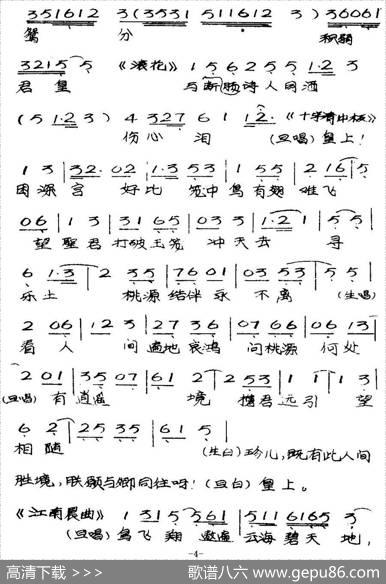 3 5 1 6 1 2 3 (3 5 3 1 5 1 1 6 1 2 3 ) 3 6 0 6 1
鸳 分
3 2 1 5 5 《滚花》 1 5 6 2 5 5 1·2 3
君皇 与断肠诗人同洒
(5 1·2 3) 4 3 2 7 6 1 1 2· 《十字清中板》
伤心 泪 (旦唱) 皇上!
1 3 | 3 2· 0 2 | 1·3 5 3 | 1 5 5 | 2 1 6 | 5
困深宫 好比 笼中鸟有翅 难飞
0 6 | 1 3 | 3 1 6 5 | 0 3 3 | 1·2 1 | 5 5 |
望圣君 打破玉笼 冲天去 寻
6 1·3 | 2 3 5 | 7 6 0 1 | 0 3 5 3 | 5 5 |
乐土 桃源结伴永 不离 (生唱)
2 0 6 | 1 2 3 | 2 7 3 6 | 0 7 0 6 | 0 6 1 3 |
看人 间遍地哀鸿 问桃源 何处
2 0 1 | 3 5 0 7 | 6 1 2 | 2 5 3 | 1 1 | 1 3 |
(旦唱) 有逍遥 境 携君远引 望
6 2 | 2 5 3 5 | 6 1 5 |
相随 (生白) 珍儿,既有此人间
胜境,朕愿与卿同往呀! (旦白) 皇上。
《江南晨曲》 1 3 1 5 | 5 6 1 | 5 1 1 6 1 6 5 3 |
(旦唱) 鸟飞翔 遨遊 云海碧天地,
-4-
高清下载 >>> 歌谱八六 www.gepu86.com